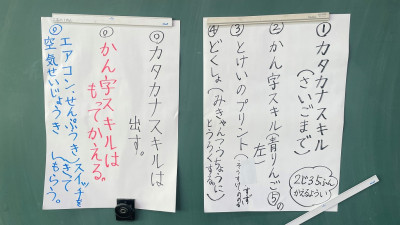 ①カタカナスキル
(さいごまで)
②かん字スキル(青りんご⑤の
左)
③とけいのプリント(
④どくしょ(みきゃんつうちょうに
とうろくする。)
2じ35ぷん
かえるようい
◎カタカナスキルは
出す。
◎かん字スキルは
もってかえる。
◎エアコン、せんぷうき、
空気せいじょうき
スイッチを
きって
もらう。